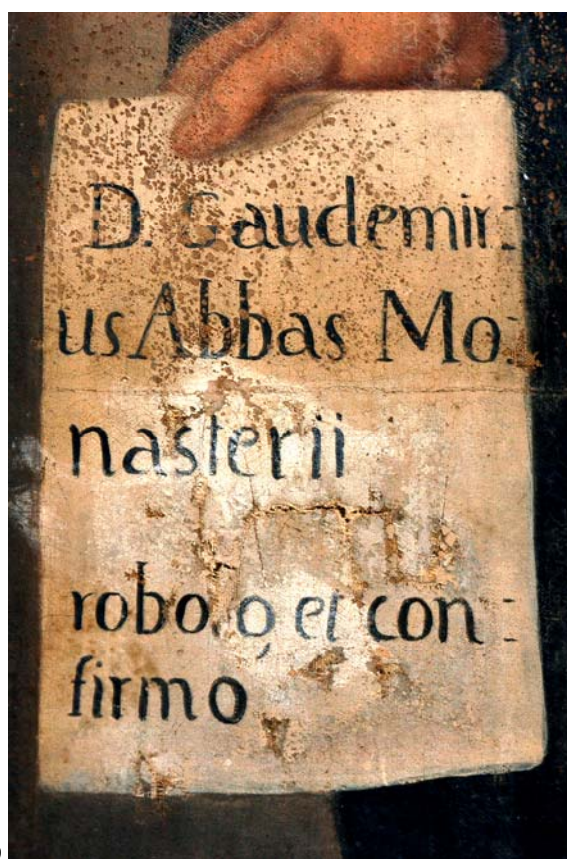 D. Gaudemir:
us Abbas Mo:
nasterii
roboro et con:
firmo